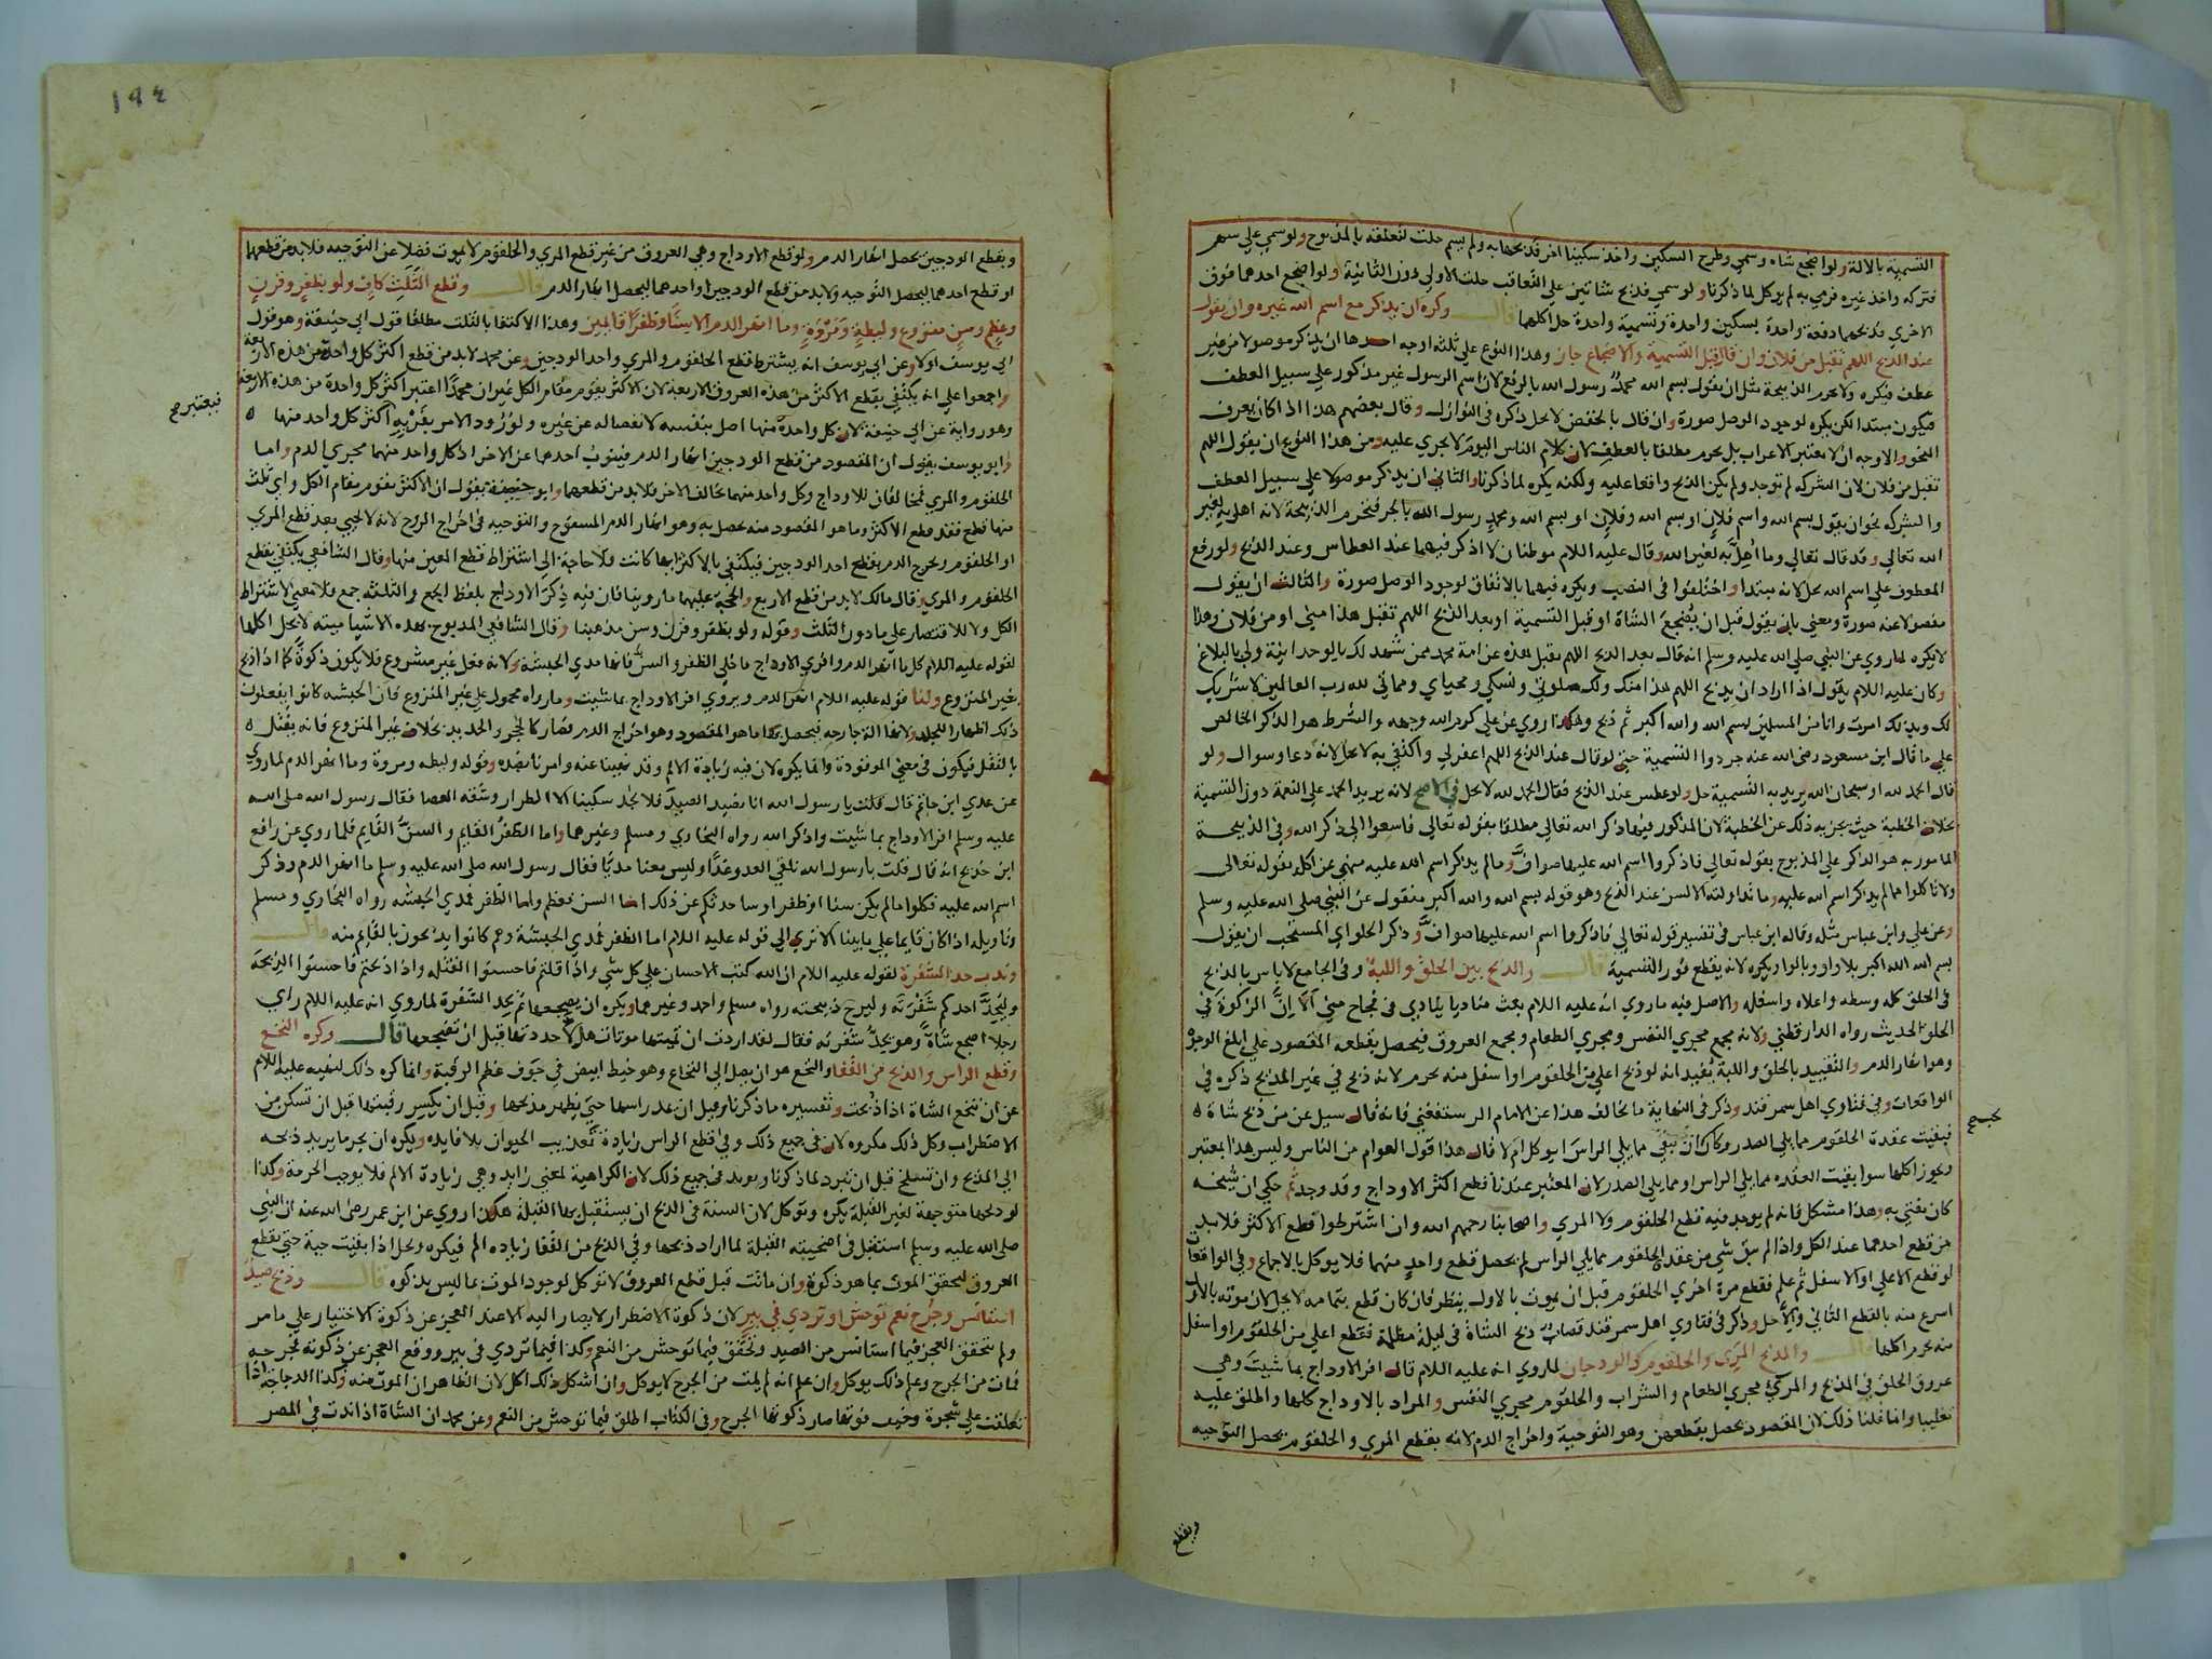 التسمية بالالة ولو اضجع شاه وسمي وطرح السكين واخذ سكينا اخر فذبحها به ولم يسم حلت لتعلقه بالمذبوح ولو سمي علي سهم
فتركه واخذ غيره فرمي به لم يوكل لما ذكرنا ولو سمي فذبح شاتين علي التعاقب حلت الاولي دون الثانية ولو اضجع احدهما فوق
الاخري فذبحهما دفعة واحدة بسكين واحدة وتسمية واحدة حل اكلهما قال وكره ان يذكر مع اسم الله غيره وان يقول
عند الذبح اللهم تقبل من فلان وان قال قبل التسمية والاضجاع جاز وهذا النوع علي ثلثة اوجه احدها ان يذكر موصولا من غير
عطف فيكره ولا تحرم الذبيحة مثل ان يقول بسم الله محمد رسول الله بالرفع لان اسم الرسول غير مذكور علي سبيل العطف
فيكون مبتدا لكن يكره لوجود الوصل صورة وان قال بالخفض لا يحل ذكره في النوازل وقال بعضهم هذا اذا كان يعرف
النحو والاوجه ان لا يعتبر الاعراب بل يحرم مطلقا بالعطف لان كلام الناس اليوم لا يجري عليه ومن هذا النوع ان يقول اللهم
تقبل من فلان لان الشركة لم توجد ولم يكن الذبح واقعا عليه ولكنه يكره لما ذكرنا والثاني ان يذكر موصولا علي سبيل العطف
والشركة نحو ان يقول بسم الله واسم فلان او بسم الله وفلان او بسم الله ومحمد رسول الله بالجر فتحرم الذبيحة لانه اهل به لغير
الله تعالي وقد قال تعالي وما اهل به لغير الله وقال عليه السلام موطنان لا اذكر فيهما عند العطاس وعند الذبح ولو رفع
المعطوف علي اسم الله يحل لانه مبتدا واختلفوا في النصب ويكره فيهما بالاتفاق لوجود الوصل صورة والثالث ان يقول
مفصولا عنه صورة ومعني بان يقول قبل ان يضجع الشاة او قبل التسمية او بعد الذبح اللهم تقبل هذا مني او من فلان وهذا
لا يكره لما روي عن النبي صلي الله عليه وسلم انه قال بعد الذبح اللهم تقبل هذه عن امة محمد ممن شهد لك بالوحدانية ولي بالبلاغ
وكان عليه السلام يقول اذا اراد ان يذبح اللهم هذا منك ولك صلوتي ونسكي ومحياي ومماتي لله رب العالمين لا شريك
لك وبذلك امرت وانا من المسلمين بسم الله والله اكبر ثم ذبح وهكذا روي عن علي كرم الله وجهه والشرط هو الذكر الخالص
علي ما قال ابن مسعود رضي الله عنه جردوا التسمية حتي لو قال عند الذبح اللهم اغفر لي واكتفي به لا يحل لانه دعا وسوال ولو
قال الحمد لله او سبحان الله يريد به التسمية حل ولو عطس عند الذبح فقال الحمد لله لا يحل في الاصح لانه يريد الحمد علي النعمة دون التسمية
بخلاف الخطبة حيث يجزيه ذلك عن الخطبة لان المذكور فيها ذكر الله تعالي مطلقا بقوله تعالي فاسعوا الي ذكر الله وفي الذبيحة
المامور به هو الذكر علي المذبوح بقوله تعالي فاذكروا اسم الله عليها صواف وما لم يذكر اسم الله عليه منهي عن اكله بقوله تعالي
ولا تاكلوا مما لم يذكر اسم الله عليه وما تداولته الالسن عند الذبح وهو قوله بسم الله والله اكبر منقول عن النبي صلي الله عليه وسلم
وعن علي وابن عباس مثله وقاله ابن عباس في تفسير قوله تعالي فاذكروا اسم الله عليها صواف وذكر الحلواي المستحب ان يقول
بسم الله الله اكبر بلا واو وبالواو يكره لانه يقطع فور التسمية قال والذبح بين الحلق واللبة وفي الجامع لا باس بالذبح
في الحلق كله وسطه واعلاه واسفله والاصل فيه ما روي انه عليه السلام بعث مناديا ينادي في فجاج مني الا ان الزكوة في
الحلق الحديث رواه الدارقطني ولانه مجمع مجري النفس ومجري الطعام ومجمع العروق فيحصل بقطعه المقصود علي ابلغ الوجوه
وهو انهار الدم والتقييد بالحلق واللبة يفيد انه لو ذبح اعلي من الحلقوم او اسفل منه يحرم لانه ذبح في غير المذبح ذكره في
الواقعات وفي فتاوي اهل سمرقند وذكر في النهاية ما يخالف هذا عن الامام الرستغفني فانه قال سيل عن من ذبح شاة
فبقيت عقدة الحلقوم مما يلي الصدر وكان يجب ان تبقي مما يلي الراس ايوكل ام لا قال هذا قول العوام من الناس وليس هذا بمعتبر
ويجوز اكلها سوا بقيت العقده مما يلي الراس او مما يلي الصدر لان المعتبر عندنا قطع اكثر الاوداج وقد وجد ثم حكي ان شيخه
كان يفتي به وهذا مشكل فانه لم يوجد فيه قطع الحلقوم ولا المري واصحابنا رحمهم الله وان اشترطوا قطع الاكثر فلا بد
من قطع احدهما عند الكل واذا لم يبق شي من عقدة الحلقوم مما يلي الراس لم يحصل قطع واحد منهما فلا يوكل بالاجماع وفي الواقعات
لو قطع الاعلي او الاسفل ثم علم فقطع مرة اخري الحلقوم قبل ان يموت بالاول ينظر فان كان قطع بتمامه لا يحل لان موته بالاول
اسرع منه بالقطع الثاني والا حل وذكر في فتاوي اهل سمرقند قصاب ذبح الشاة في ليلة مظلمة فقطع اعلي من الحلقوم او اسفل
منه يحرم اكلها قال والمذبح المري والحلقوم والودجان لما روي انه عليه السلام قال افر الاوداج بما شيت وهي
عروق الحلق في المذبح والمري مجري الطعام والشراب والحلقوم مجري النفس والمراد بالاوداج كلها واطلق عليه
تغليبا وانما قلنا ذلك لان المقصود يحصل بقطعهن وهو التوحية واخراج الدم لانه بقطع المري والحلقوم يحصل التوحيه
ويقطع
١٩٤
وبقطع الودجين يحصل انهار الدم ولو قطع الاوداج وهي العروق من غير قطع المري والحلقوم لا يموت فضلا عن التوحيه فلا بد من قطعهما
او قطع احدهما ليحصل التوحيه ولا بد من قطع الودجين او احدهما ليحصل انهار الدم قال وقطع الثلث كاف ولو بظفر وقرن
وعظم وسن منزوع وليطة ومروة وما انهر الدم الا سنا وظفرا قايمين وهذا الاكتفا بالثلث مطلقا قول ابي حنيفة وهو قول
ابي يوسف اولا وعن ابي يوسف انه يشترط قطع الحلقوم والمري واحد الودجين وعن محمد لا بد من قطع اكثر كل واحدة من هذه الاربعة
واجمعوا علي انه يكتفي بقطع الاكثر من هذه العروق الاربعة لان الاكثر يقوم مقام الكل غير ان محمدا اعتبر اكثر كل واحدة من هذه الاربعة
وهو رواية عن ابي حنيفة لان كل واحدة منها اصل بنفسه لانفصاله عن غيره ولورود الامر بفريه فيعتبر اكثر كل واحد منها
وابو يوسف يقول ان المقصود من قطع الودجين انهار الدم فينوب احدهما عن الاخر اذ كل واحد منهما مجري الدم واما
الحلقوم والمري فمخالفان للاوداج وكل واحد منهما يخالف الاخر فلا بد من قطعهما وابو حنيفة يقول ان الاكثر يقوم مقام الكل واي ثلث
منها قطع فقد قطع الاكثر وما هو المقصود منه يحصل به وهو انهار الدم المسفوح والتوحيه في اخراج الروح لانه لا يحيي بعد قطع المري
او الحلقوم ويخرج الدم بقطع احد الودجين فيكتفي بالاكثر ايها كانت فلا حاجة الي اشتراط قطع المعين منها وقال الشافعي يكتفي بقطع
الحلقوم والمري وقال مالك لا بد من قطع الاربع والحجة عليهما ما روينا فان فيه ذكر الاوداج بلفظ الجمع والثلثة جمع فلا معني لاشتراط
الكل ولا للاقتصار علي ما دون الثلث وقوله ولو بظفر وقرن وسن مذهبنا وقال الشافعي المذبوح بهذه الاشيا ميتة لا يحل اكلها
لقوله عليه السلام كل ما انهر الدم وافري الاوداج ما خلي الظفر والسن فانها مدي الحبشة ولانه فعل غير مشروع فلا يكون ذكوة كما اذا ذبح
بغير المنزوع ولنا قوله عليه السلام انهر الدم ويروي افر الاوداج بما شيت وما رواه محمول علي غير المنزوع فان الحبشه كانوا يفعلون
ذلك اظهارا للجلد ولانها الة جارحه فيحصل بها ما هو المقصود وهو اخراج الدم فصار كالحجر والحديد بخلاف غير المنزوع فانه يقتل
بالثقل فيكون في معني الموقوذة وانما يكره لان فيه زيادة الالم وقد نهينا عنه وامرنا بضده وقوله وليطه ومروة وما انهر الدم لما روي
عن عدي ابن حاتم قال قلت يا رسول الله انا نصيد الصيد فلا نجد سكينا الا الظرار وشقه العصا فقال رسول الله صلي الله
عليه وسلم افر الاوداج بما شيت واذكر الله رواه البخاري ومسلم وغيرهما واما الظفر القايم والسن القايم فلما روي عن رافع
ابن خديج انه قال قلت يا رسول الله نلقي العدو غدا وليس معنا مديا فقال رسول الله صلي الله عليه وسلم ما انهر الدم وذكر
اسم الله عليه فكلوا ما لم يكن سنا او ظفرا وساحدثكم عن ذلك اما السن فعظم واما الظفر فمدي الحبشه رواه البخاري ومسلم
وتاويله اذا كان قايما علي ما بينا الا تري الي قوله عليه السلام اما الظفر فمدي الحبشة وهم كانوا يذبحون بالقايم منه قال
وندب حد الشفرة لقوله عليه السلام ان الله كتب الاحسان علي كل شي واذا قتلتم فاحسنوا القتله واذا ذبحتم فاحسنوا الذبحة
وليحد احدكم شفرته وليرح ذبيحته رواه مسلم واحمد وغيرهما ويكره ان يضجعها ثم يحد الشفرة لما روي انه عليه السلام راي
رجلا اضجع شاة وهو يحد شفرته فقال لقد اردت ان تميتها موتات هلا حددتها قبل ان تضجعها قال وكره النخع
وقطع الراس والذبح من القفا والنخع هو ان يصل الي النخاع وهو خيط ابيض في جوف عظم الرقبة وانما كره ذلك لنهيه عليه السلام
عن ان تنخع الشاة اذا ذبحت وتفسيره ما ذكرنا وقيل ان يمد راسها حتي يظهر مذبحها وقيل ان يكسر رقبتها قبل ان تسكن من
الاضطراب وكل ذلك مكروه لان في جميع ذلك وفي قطع الراس زيادة تعذيب الحيوان بلا فايده ويكره ان يجر ما يريد ذبحه
الي المذبح وان تسلخ قبل ان تبرد لما ذكرنا ويوكل في جميع ذلك لان الكراهية لمعني زايد وهي زيادة الالم فلا يوجب الحرمة وكذا
لو ذبحها متوجهة لغير القبلة يكره وتوكل لان السنة في الذبح ان يستقبل بها القبلة هكذا روي عن ابن عمر رضي الله عنه ان النبي
صلي الله عليه وسلم استقبل في اضحيته القبلة لما اراد ذبحها وفي الذبح من القفا زيادة الم فيكره ويحل اذا بقيت حية حتي تقطع
العروق ليتحقق الموت بما هو ذكوة وان ماتت قبل قطع العروق لا توكل لوجود الموت بما ليس بذكوه قال وذبح صيد
استانس وجرح نعم توحش او تردي في بير لان ذكوة الاضطرار لا يصار اليه الا عند العجز عن ذكوة الاختيار علي ما مر
ولم يتحقق العجز فيما استانس من الصيد وتحقق فيما توحش من النعم وكذا فيما تردي في بير ووقع العجز عن ذكوته فجرحه
فمات من الجرح وعلم ذلك يوكل وان علم انه لم يمت من الجرح لا يوكل وان اشكل ذلك اكل لان الظاهر ان الموت منه وكذا الدجاجة اذا
تعلقت علي شجرة وخيف فوتها صار ذكوتها الجرح وفي الكتاب اطلق فيما توحش من النعم وعن محمد ان الشاة اذا ندت في المصر